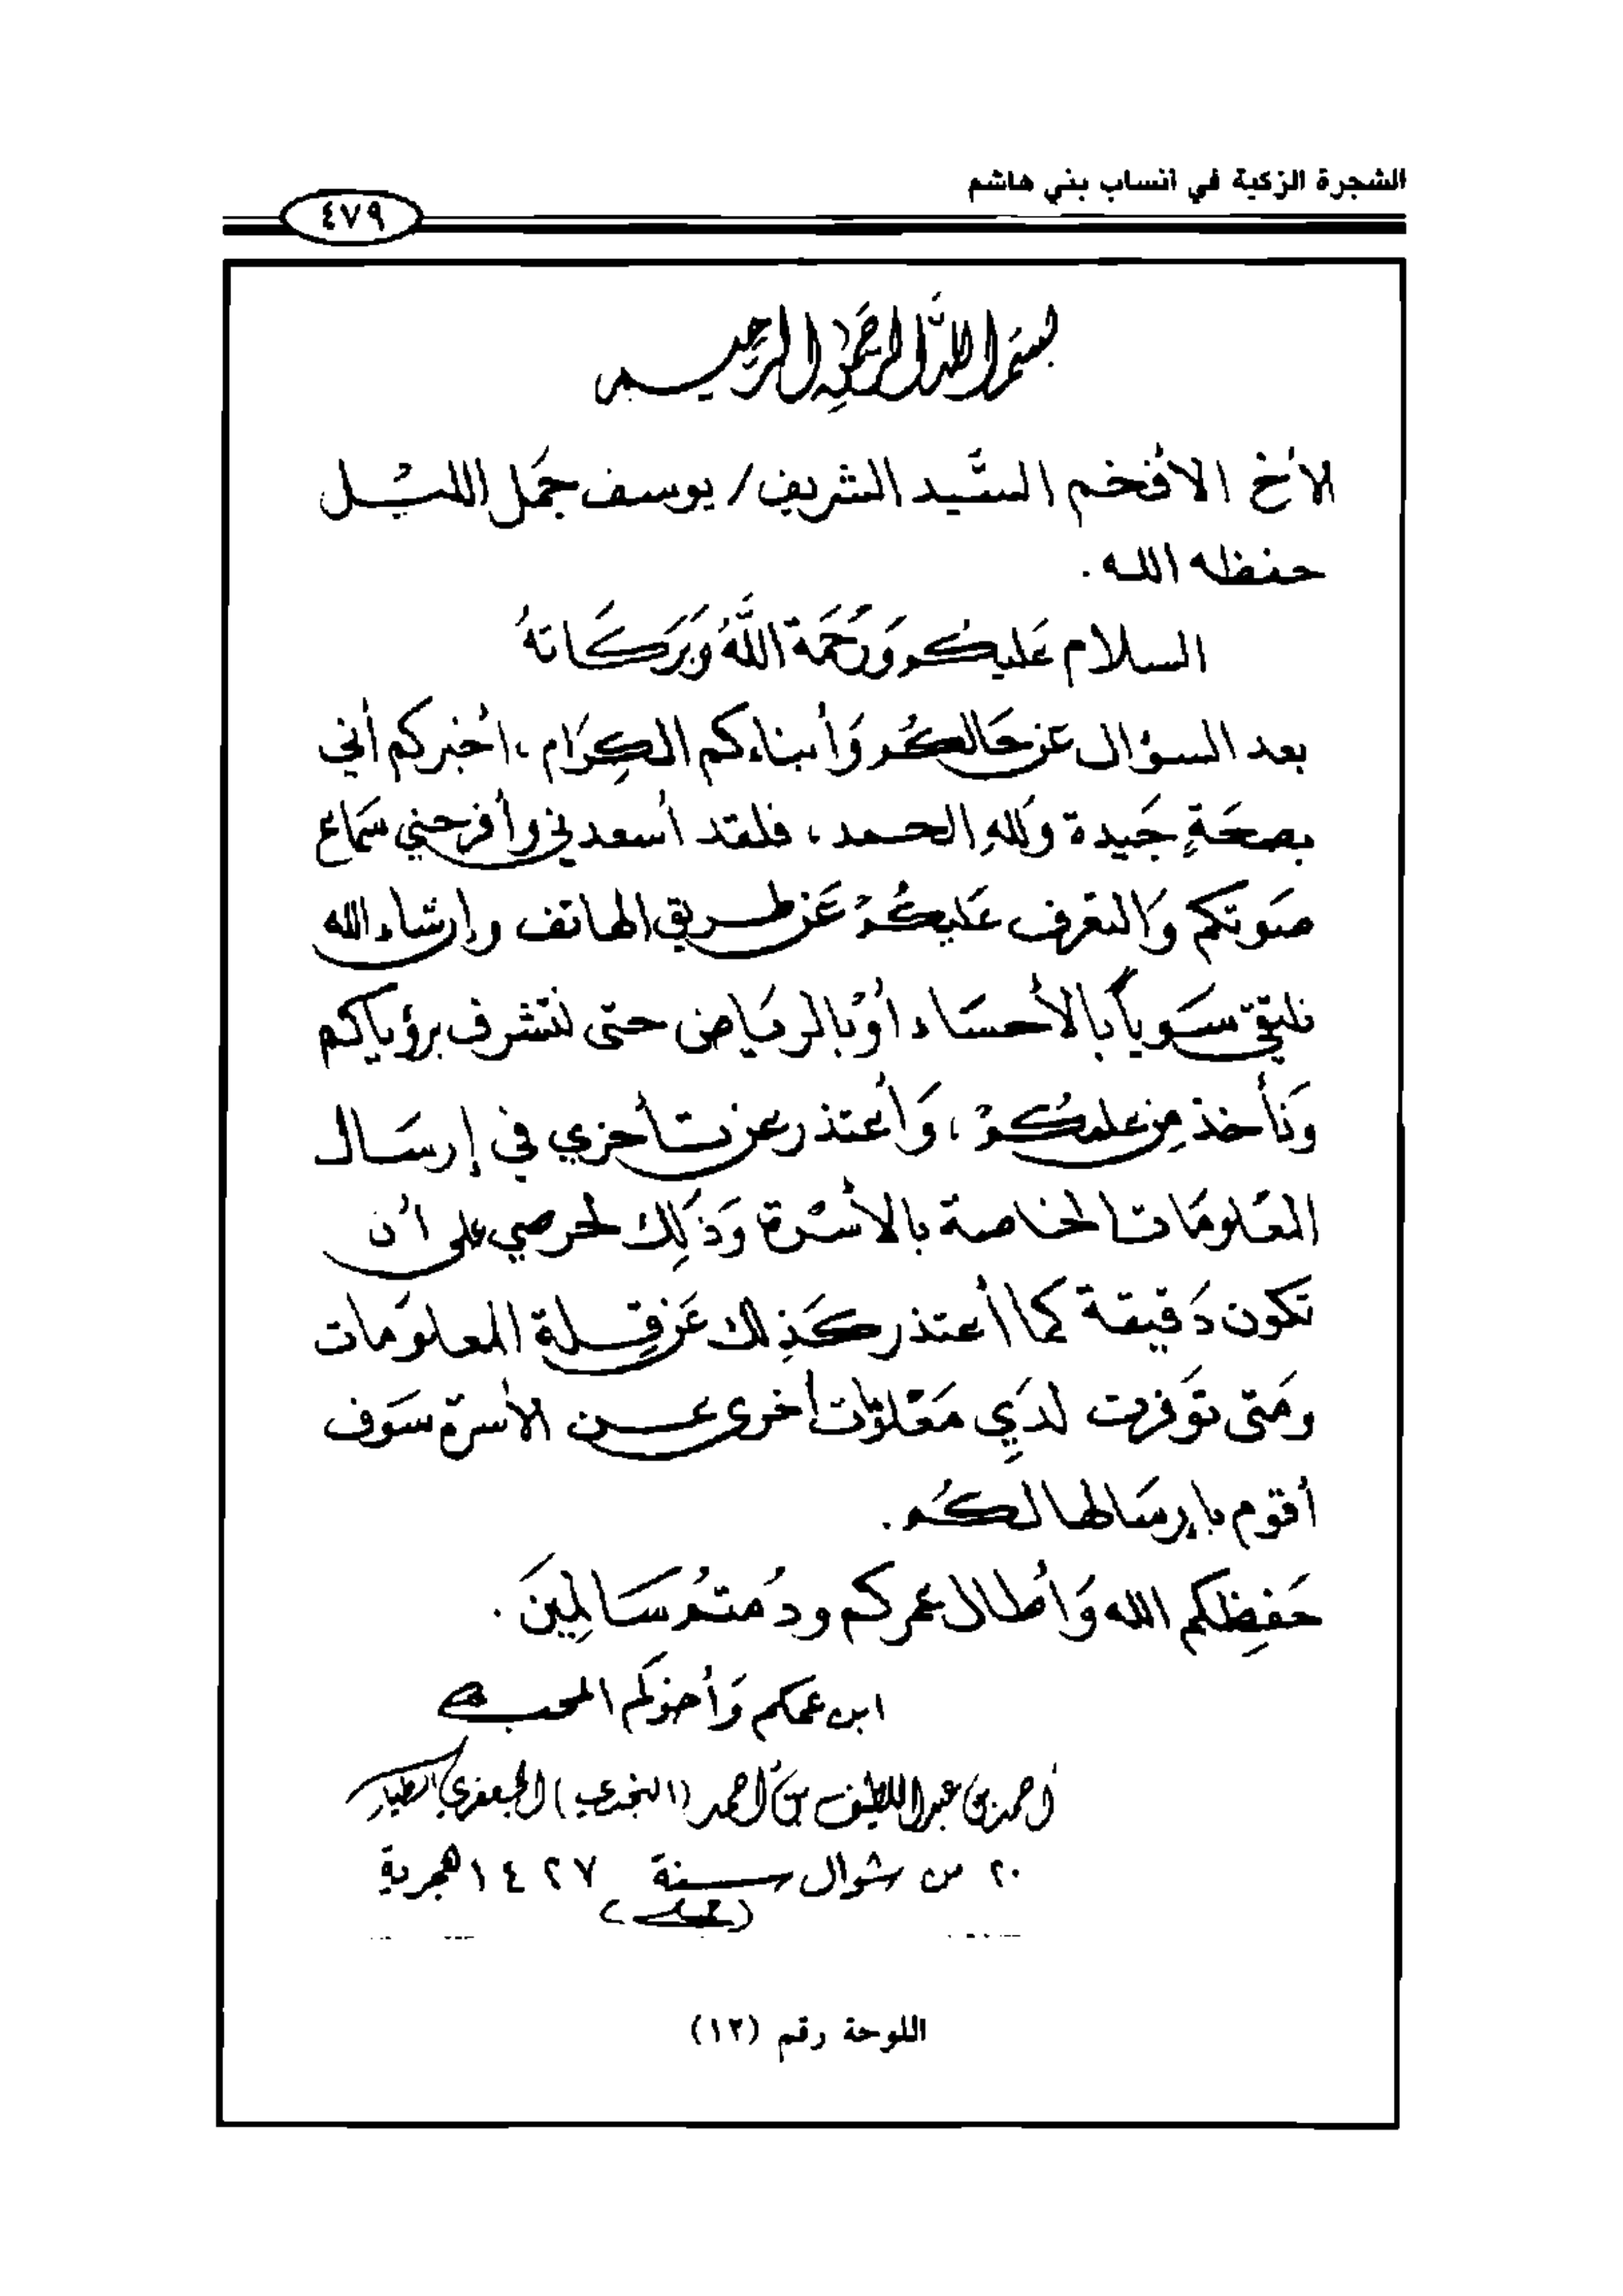 الشجرة الزكية في أنساب بني هاشم
٤٧٩
بسم الله الرحمن الرحيم
لأخ الأفخم السَّيد الشريف / يوسف جمَل الليْل
حفظه الله .
السلام عَليكُم وَرَحَمَة اللَّهُ وَبَرَكَاتهُ
بعد السؤال عَن حَالكُم وَأبناءكم الكِرَام ، أخبركم أني
بصحَةٍ جَيدة وَللهِ الحمد ، فلقد أسعدني وأفرحني سَمَاع
صَوتكم وَالتعرف عَليكُمْ عَن طريق الهاتف وإن شاء الله
نلتقي سَوياً بالأحسَاء أوْ بالريَاض حتى نتشرف برؤياكم
وَنأخذ مِن علمكُمْ ، وَأعتذر عن تأخري في إرسَال
المعْلومَات الخاصة بالأسْرة وَذَلِك لحرصي على أن
تكون دَقيقة كما أعتذر كَذِلك عَن قِلة المعلومَات
ومَتى توَفرت لدَيِ مَعْلومَات أخرى عن الأسرة سَوف
أقوم بإرسَالها لكُم .
حَفِظكم الله وَأطال عمركم ودُمتمُ سَالِمينَ .
ابن عمكم وَأخوكم المحب
أحمد بن عبد اللطيف بن أحمد (النجدي) الجعفري الطيار
٢٠ من شوال سنة ١٤٢٧ هجرية
اللوحة رقم (١٢)